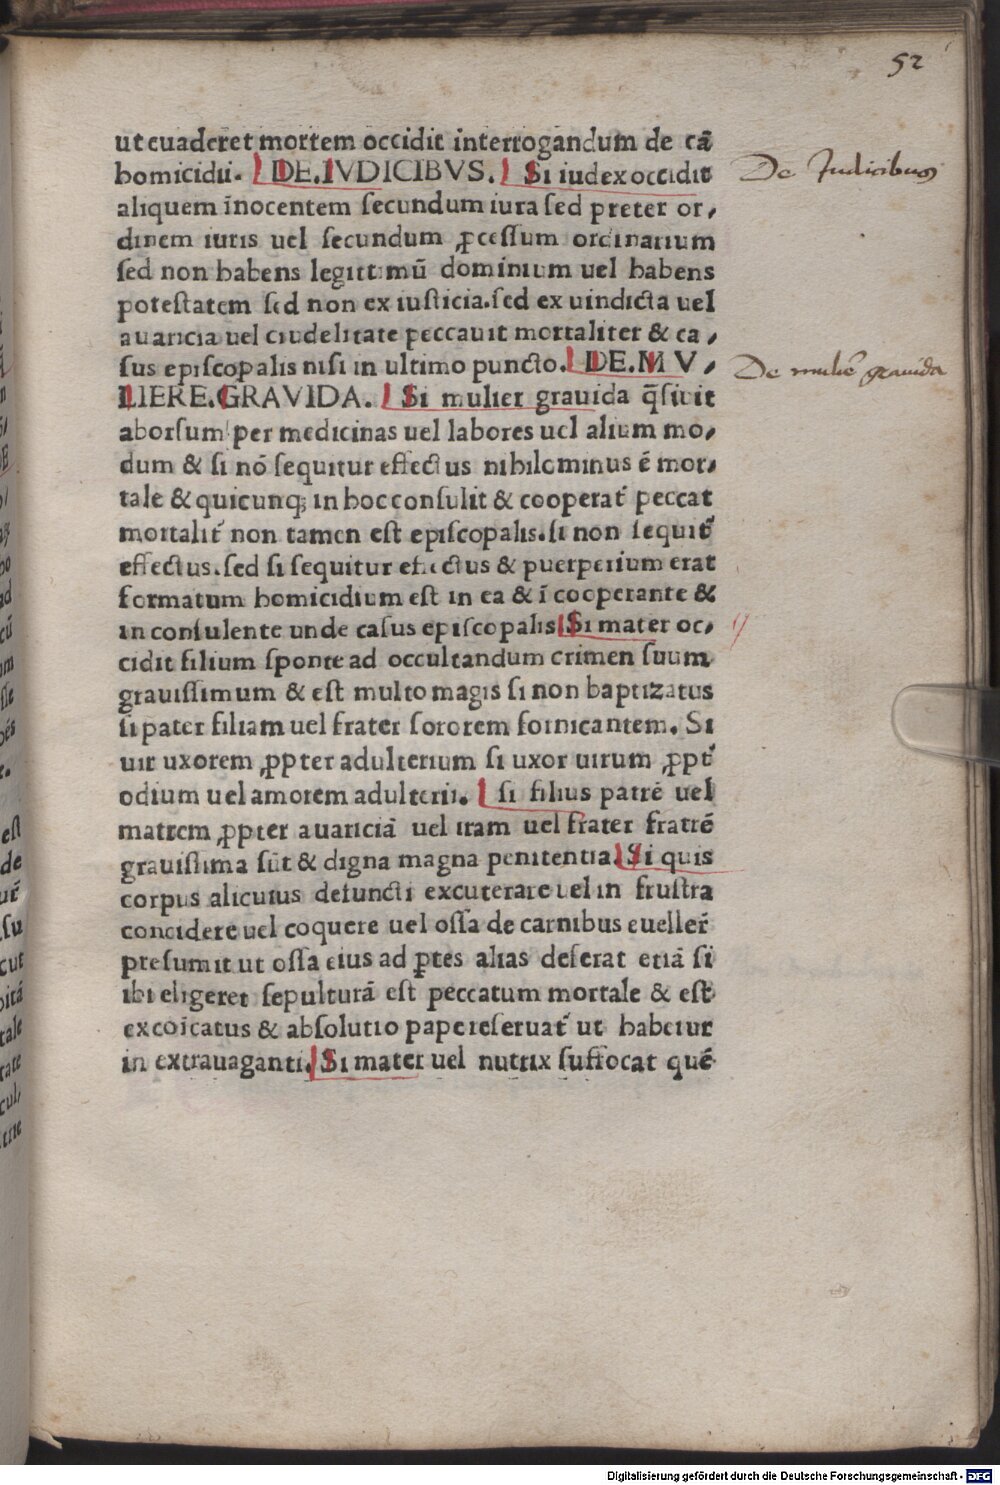 52
ut euaderet mortem occidit interrogandum de cā
homicidii. DE.IVDICIBVS. Si iudex occidit
De Iudicibus
aliquem īnocentem secundum iura sed preter or,
dinem iuris uel secundum ꝓcessum ordinarium
sed non habens legittimū dominium uel habens
potestatem sed non ex iusticia.sed ex uindicta uel
auaricia uel crudelitate peccauit mortaliter & ca,
sus episcopalis nisi in ultimo puncto. DE.MV,
De muliē grauida
LIERE.GRAVIDA. Si mulier grauida q̄siuit
aborsum per medicinas uel labores uel alium mo,
dum & si nō sequitur effectus nihilominus ē mor,
tale & quicunq; in hoc consulit & cooperat̄ peccat
mortalit̄ non tamen est episcopalis.si non sequit̄
effectus.sed si sequitur effectus & puerperium erat
formatum homicidium est in ea & ī cooperante &
in consulente unde casus episcopalis Si mater oc,
cidit filium sponte ad occultandum crimen suum
grauissimum & est multo magis si non baptizatus
si pater filiam uel frater sororem fornicantem. Si
uir uxorem ꝓpter adulterium si uxor uirum ꝓpt̄
odium uel amorem adulterii. si filius patrē uel
matrem ꝓpter auariciā uel iram uel frater fratrē
grauissima sūt & digna magna penitentia. Si quis
corpus alicuius defuncti excuterare uel in frustra
concidere uel coquere uel ossa de carnibus eueller̄
presumit ut ossa eius ad ꝑtes alias deferat etiā si
ibi eligeret sepulturā est peccatum mortale & est
excoīcatus & absolutio pape reseruat̄ ut habetur
in extrauaganti. Si mater uel nutrix suffocat quē
Digitalisierung gefördert durch die Deutsche Forschungsgemeinschaft - DFG